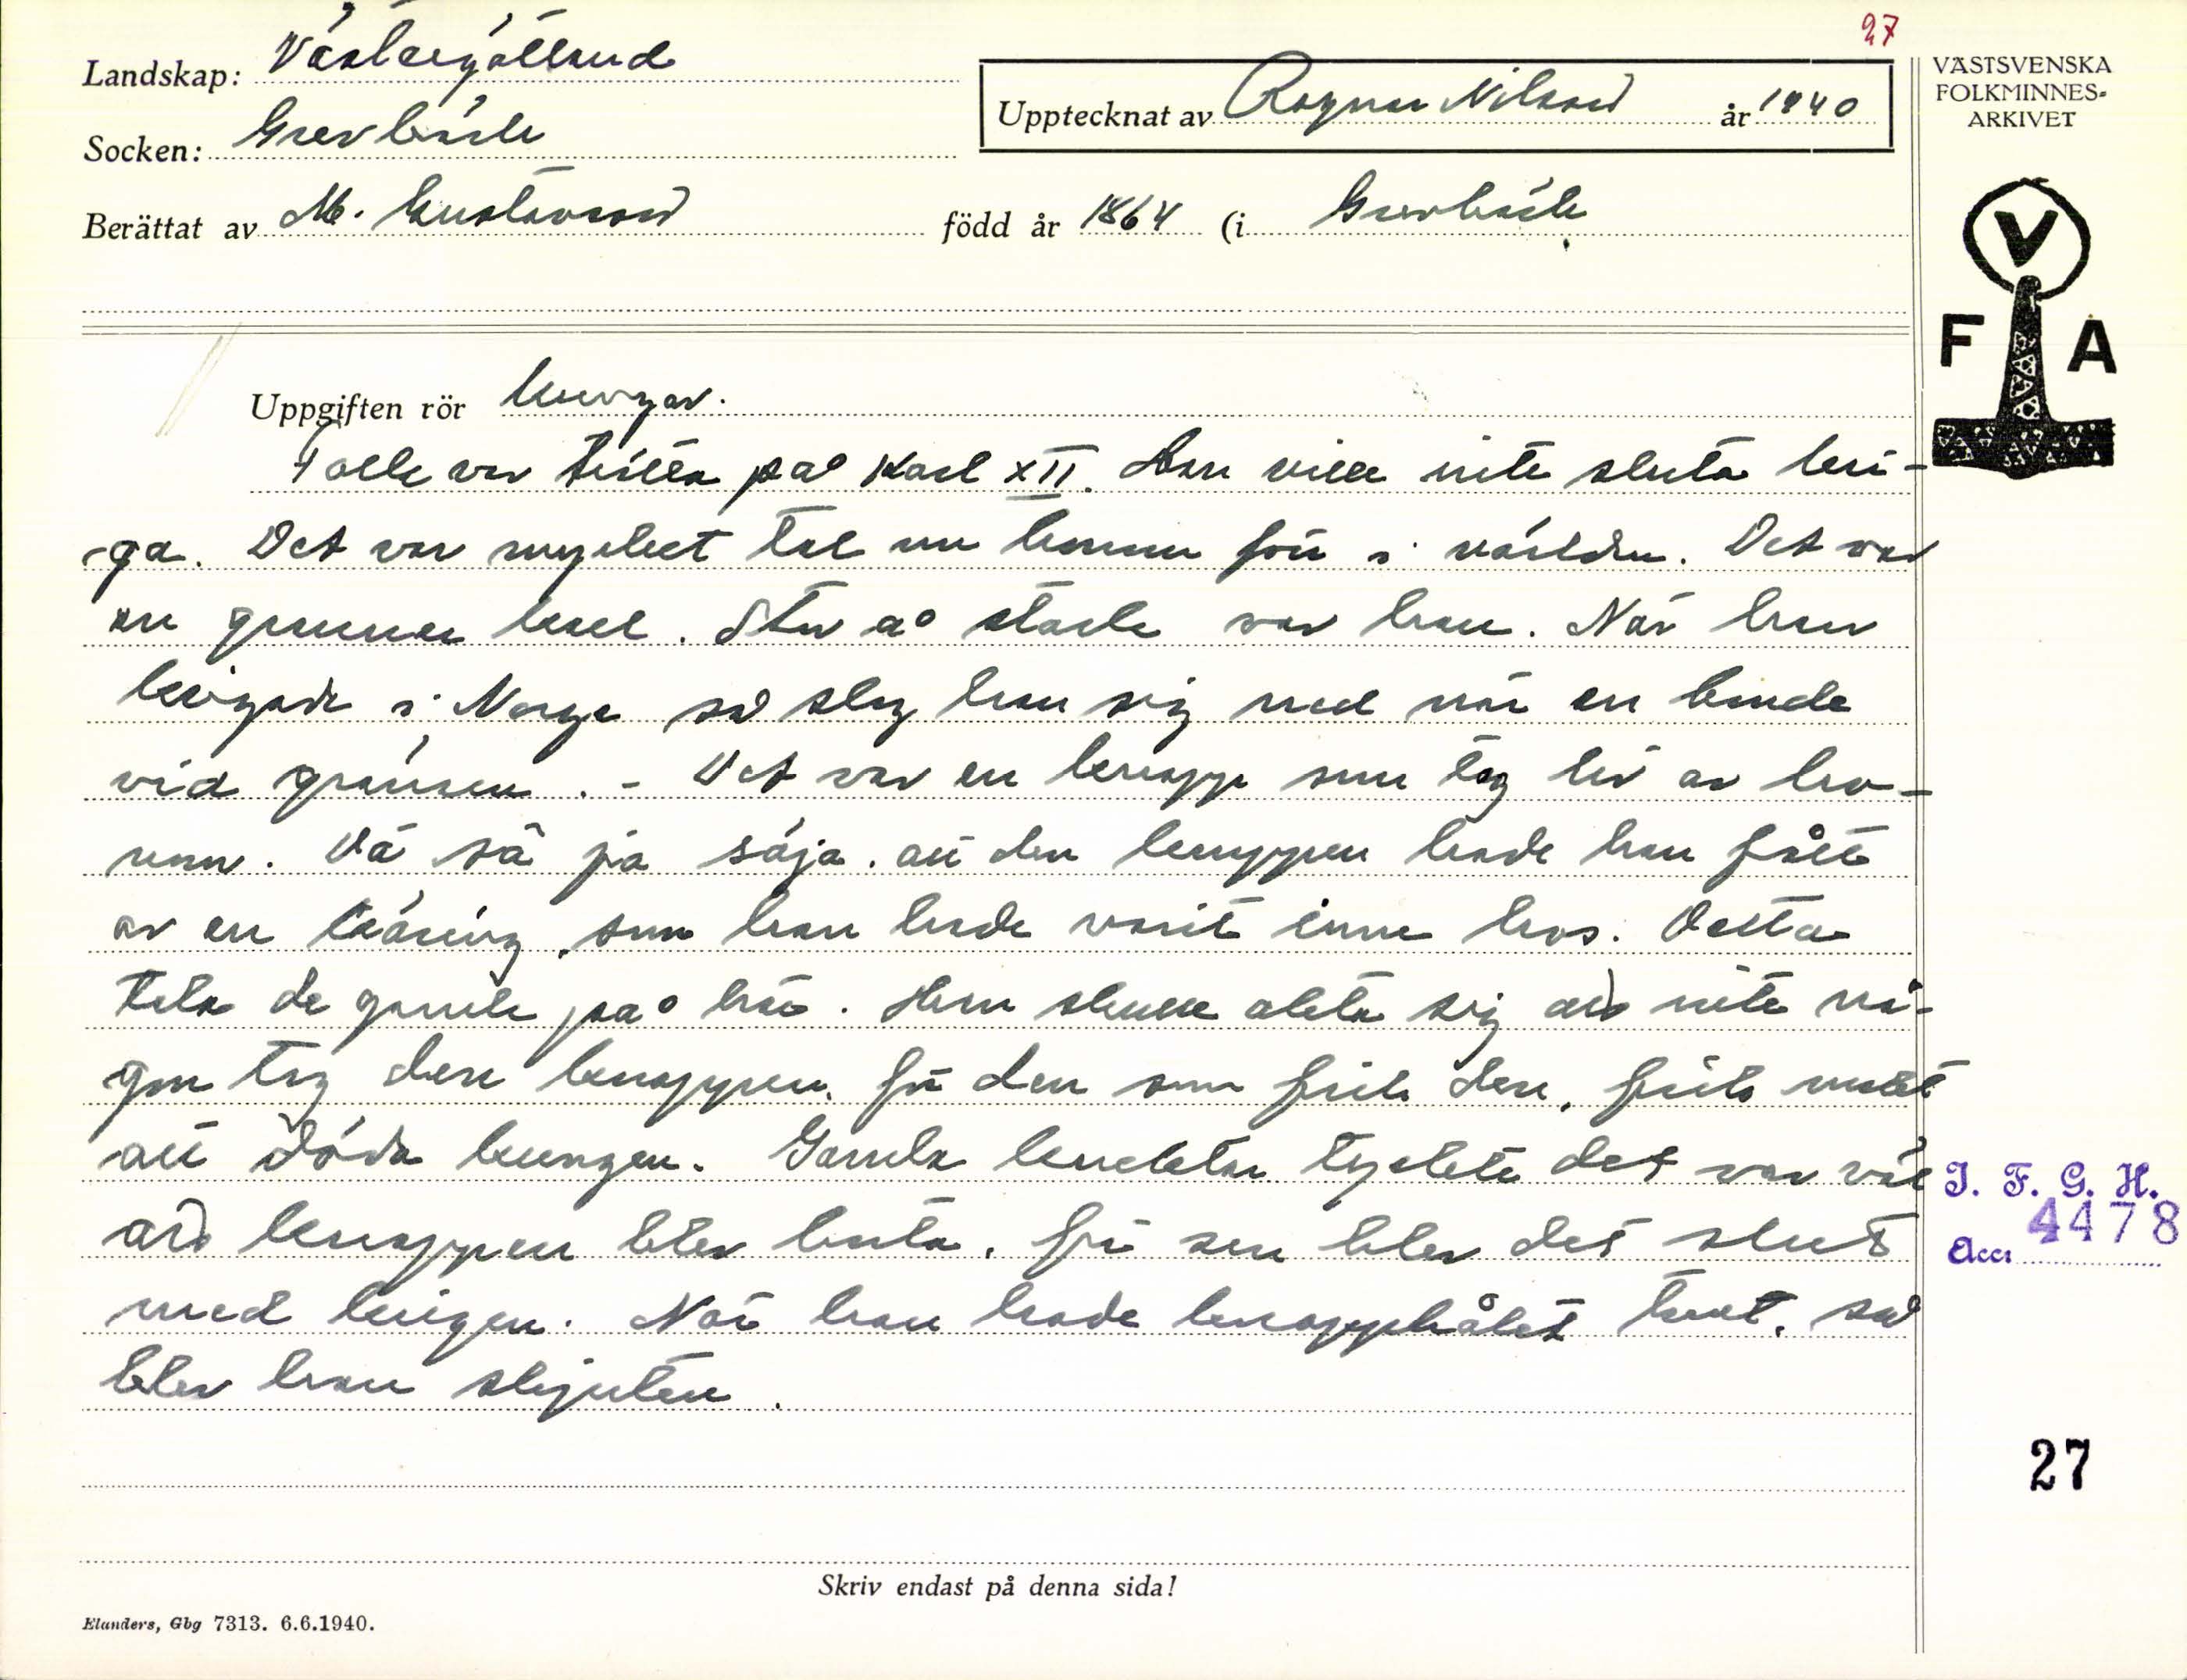 27
Landskap: Västergötland
Upptecknat av Ragnar Nilsson år 1940
Socken: Grevbäck
Berättat av M. Gustavsson född år 1864 (i Grevbäck
VÄSTSVENSKA
FOLKMINNES-
ARKIVET
V
F A
Uppgiften rör kungar.
Folk var trötta på Karl XII. Han ville inte sluta kri-
ga. Det var mycket tal om honom förr i världen. Det var
en grann karl. Stor å stark var han. När han
krigade i Norge så slog han sig ned när en bonde
vid gränsen. - Det var en knapp som tog liv av ho-
nom. Dä sä ja säja. att den knappen hade han fått
av en käring som han hade varit inne hos. Detta
tala de gamle på här. Han skulle akta sig att inte nå-
gon tog den knappen. för den som fick den, fick makt
att döda kungen. Gamla knektar tyckte det var väl
att knappen blev borta, för sen blev det slut
med krigen. När han hade knapphålet tomt. så
blev han skjuten.
I. F. G. H.
Acc: 4478
27
Skriv endast på denna sida!
Elanders, Gbg 7313. 6.6.1940.